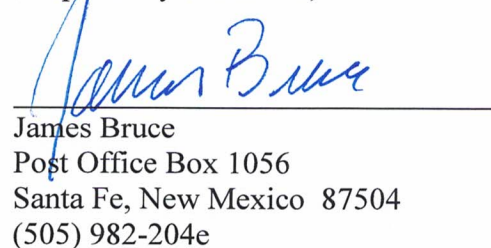 James Bruce
James Bruce
Post Office Box 1056
Santa Fe, New Mexico  87504
(505) 982-204e